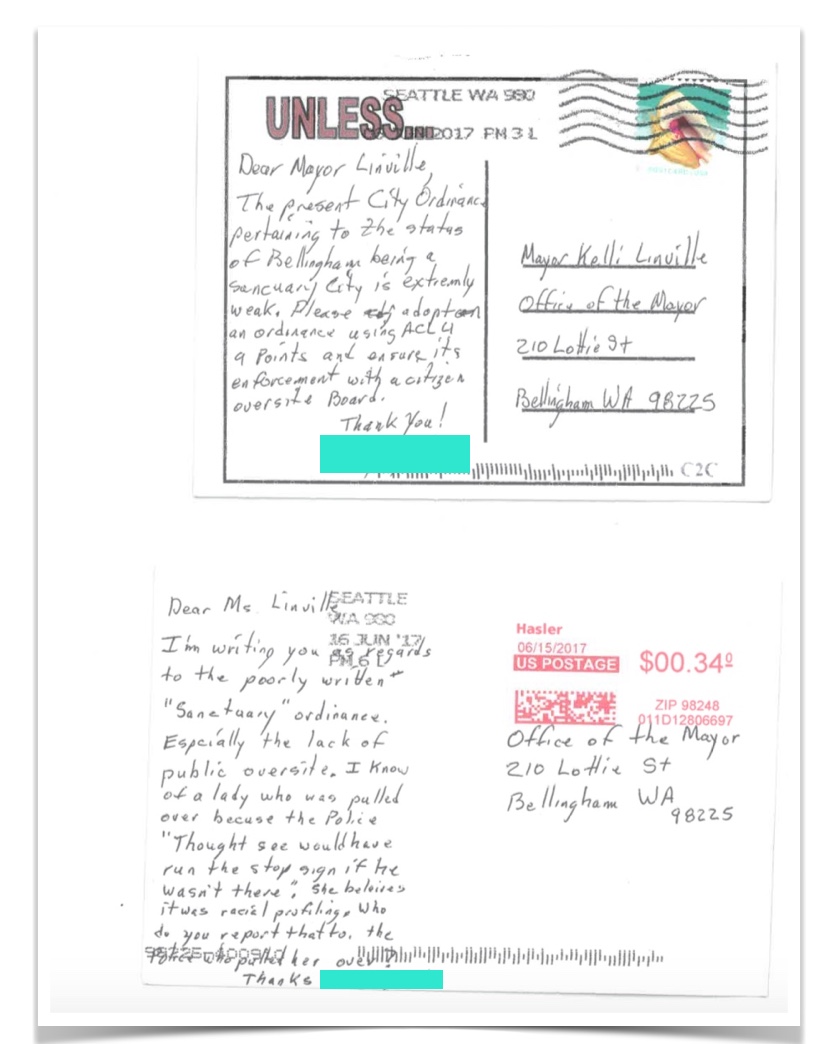 SEATTLE WA 980
UNLESS...
2017 PM 3 L
Dear Mayor Linville,
The present City Ordinance
pertaining to the status
of Bellingham being a
sancuary City is extremly
weak. Please adopt
an ordinance using ACLU
9 Points and ensure its
enforcement with a citizen
oversite Board.
Thank You!
Mayor Kelli Linville
Office of the Mayor
210 Lottie St
Bellingham WA 98225
C2C
Dear Ms. Linville
SEATTLE
WA 980
16 JUN '17
PM 6 L
I'm writing you as regards
to the poorly written
"Sanctuary" ordinance.
Espcially the lack of
public oversite. I know
of a lady who was pulled
over becuse the Police
"Thought see would have
run the stop sign if he
wasn't there". She beloives
it was racial profiling. Who
do you report that to. the
Police who pulled her over?
Thanks
Hasler
06/15/2017
US POSTAGE $00.34⁰
ZIP 98248
011D12806697
Office of the Mayor
210 Lottie St
Bellingham WA
98225